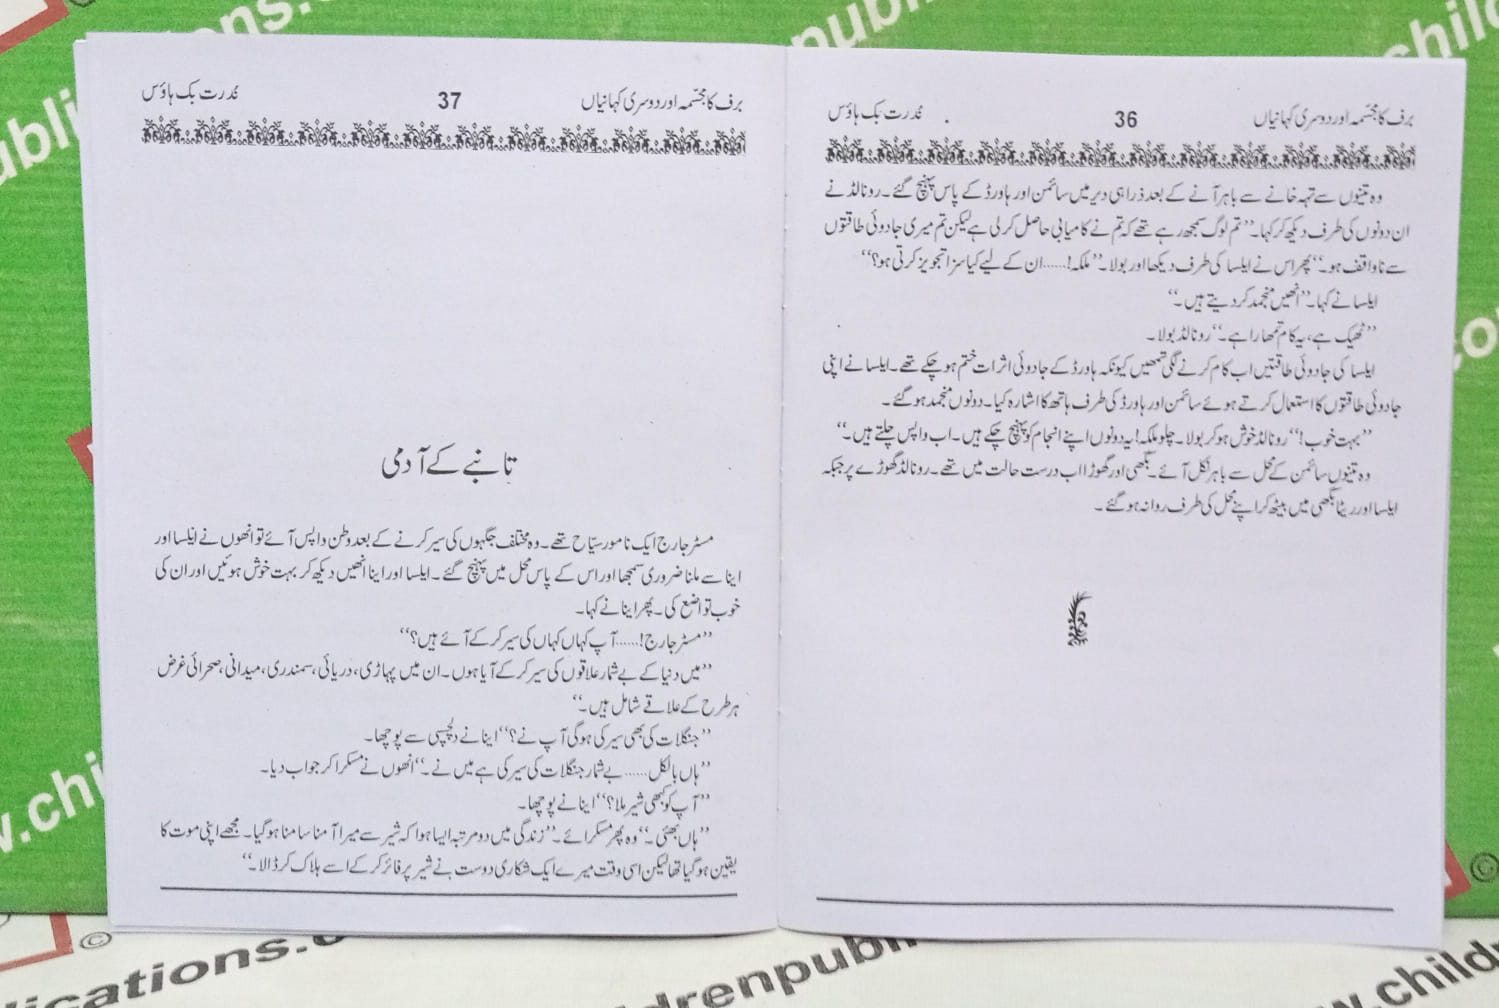 برف کا مجسّمہ اور دوسری کہانیاں 36 قدرت بک ہاؤس
وہ تینوں سے تہہ خانے سے باہر آنے کے بعد ذرا ہی دیر میں سائمن اور ہاورڈ کے پاس پہنچ گئے۔ رونالڈ نے
ان دونوں کی طرف دیکھ کر کہا۔ ”تم لوگ سمجھ رہے تھے کہ تم نے کامیابی حاصل کر لی ہے لیکن تم میری جادوئی طاقتوں
سے ناواقف ہو۔“ پھر اس نے ایلسا کی طرف دیکھا اور بولا۔ ”ملکہ!......ان کے لیے کیا سزا تجویز کرتی ہو؟“
ایلسا نے کہا۔ ”انھیں منجمد کر دیتے ہیں۔“
”ٹھیک ہے، یہ کام تمھارا ہے۔“ رونالڈ بولا۔
ایلسا کی جادوئی طاقتیں اب کام کرنے لگی تھیں کیونکہ ہاورڈ کے جادوئی اثرات ختم ہو چکے تھے۔ ایلسا نے اپنی
جادوئی طاقتوں کا استعمال کرتے ہوئے سائمن اور ہاورڈ کی طرف ہاتھ کا اشارہ کیا۔ دونوں منجمد ہو گئے۔
”بہت خوب!“ رونالڈ خوش ہو کر بولا۔ چلو ملکہ! یہ دونوں اپنے انجام کو پہنچ چکے ہیں۔ اب واپس چلتے ہیں۔“
وہ تینوں سائمن کے محل سے باہر نکل آئے۔ بگھی اور گھوڑا اب درست حالت میں تھے۔ رونالڈ گھوڑے پر جبکہ
ایلسا اور ریٹا بگھی میں بیٹھ کر اپنے محل کی طرف روانہ ہو گئے۔
برف کا مجسّمہ اور دوسری کہانیاں 37 قدرت بک ہاؤس
تانبے کے آدمی
مسٹر جارج ایک نامور سیّاح تھے۔ وہ مختلف جگہوں کی سیر کرنے کے بعد وطن واپس آئے تو انھوں نے ایلسا اور
اینا سے ملنا ضروری سمجھا اور اس کے پاس محل میں پہنچ گئے۔ ایلسا اور اینا انھیں دیکھ کر بہت خوش ہوئیں اور ان کی
خوب تواضع کی۔ پھر اینا نے کہا۔
”مسٹر جارج!......آپ کہاں کہاں کی سیر کر کے آئے ہیں؟“
”میں دنیا کے بے شمار علاقوں کی سیر کر کے آیا ہوں۔ ان میں پہاڑی، دریائی، سمندری، میدانی، صحرائی غرض
ہر طرح کے علاقے شامل ہیں۔“
”جنگلات کی بھی سیر کی ہو گی آپ نے؟“ اینا نے دلچسپی سے پوچھا۔
”ہاں بالکل......بے شمار جنگلات کی سیر کی ہے میں نے۔“ انھوں نے مسکرا کر جواب دیا۔
”آپ کو کبھی شیر ملا؟“ اینا نے پوچھا۔
”ہاں بھئی۔“ وہ پھر مسکرائے۔ ”زندگی میں دو مرتبہ ایسا ہوا کہ شیر سے میرا آمنا سامنا ہو گیا۔ مجھے اپنی موت کا
یقین ہو گیا تھا لیکن اسی وقت میرے ایک شکاری دوست نے شیر پر فائر کر کے اسے ہلاک کر ڈالا۔“